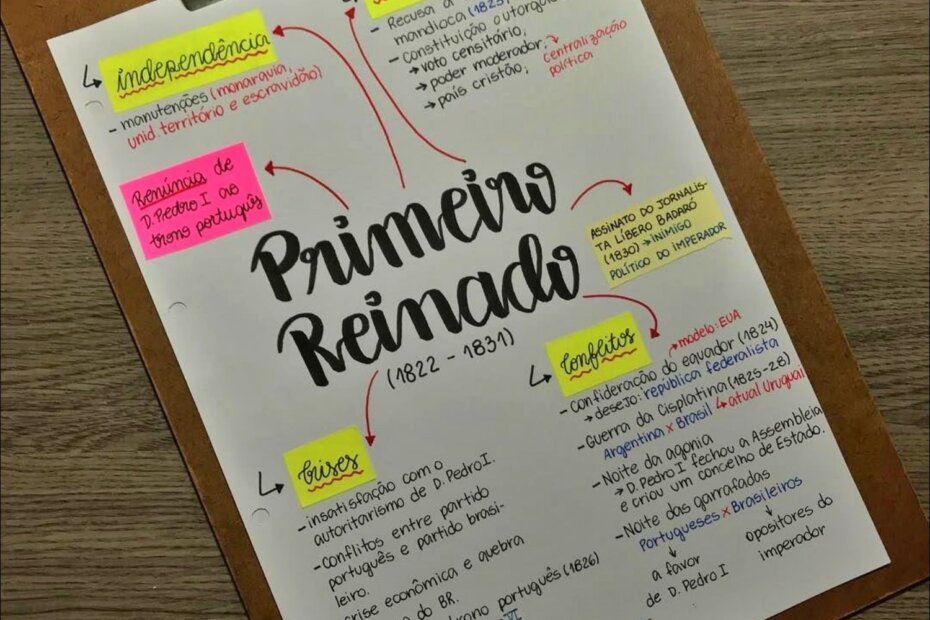 - Recusa a
mandioca (1823
- constituição outorga
→ voto censitário;
→ poder moderador; → centralização
política
→ país cristão;
independência
- manutenções (monarquia,
unid. território e escravidão)
Renúncia de
D. Pedro I ao
trono português
Primeiro
Reinado
(1822 - 1831)
ASSINATO DO JORNALIS-
TA LÍBERO BADARÓ
(1830) → INIMIGO
POLÍTICO DO IMPERADOR
Conflitos
→ modelo: EUA
- confideração do equador (1824)
→ desejo: república federalista
- Guerra da Cisplatina (1825-28)
Argentina x Brasil → atual Uruguai
- Noite da agonia
→ D. Pedro I fechou a Assembleia
e criou um concelho de Estado.
- Noite das garrafadas
Portugueses x Brasileiros
a favor
de D. Pedro I
opositores do
imperador
Crises
- insatisfação com o
autoritarismo de D. Pedro I.
- conflitos entre partido
português e partido brasi-
leiro.
crise econômica e quebra
do BR.
trono português (1826)
VI